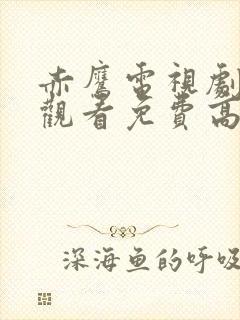 赤鹰電視劇
觀看免費高
深海鱼的呼吸